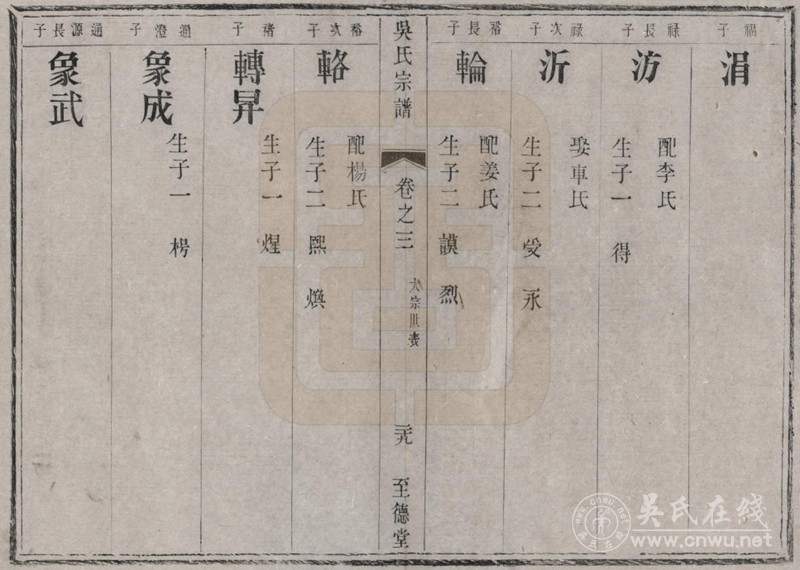 福子
涓
禄長子
汸
配李氏
生子一 得
禄次子
沂
娶車氏
生子二 受 永
裕長子
輪
配姜氏
生子二 謨 烈
吳氏宗譜
卷之三
大宗世表
至德堂
裕次子
輅
配楊氏
生子二 熙 煥
子
轉昇
生子一 煋
通澄子
象成
生子一 枴
通源長子
象武
吳氏在线
www.cnwu.net